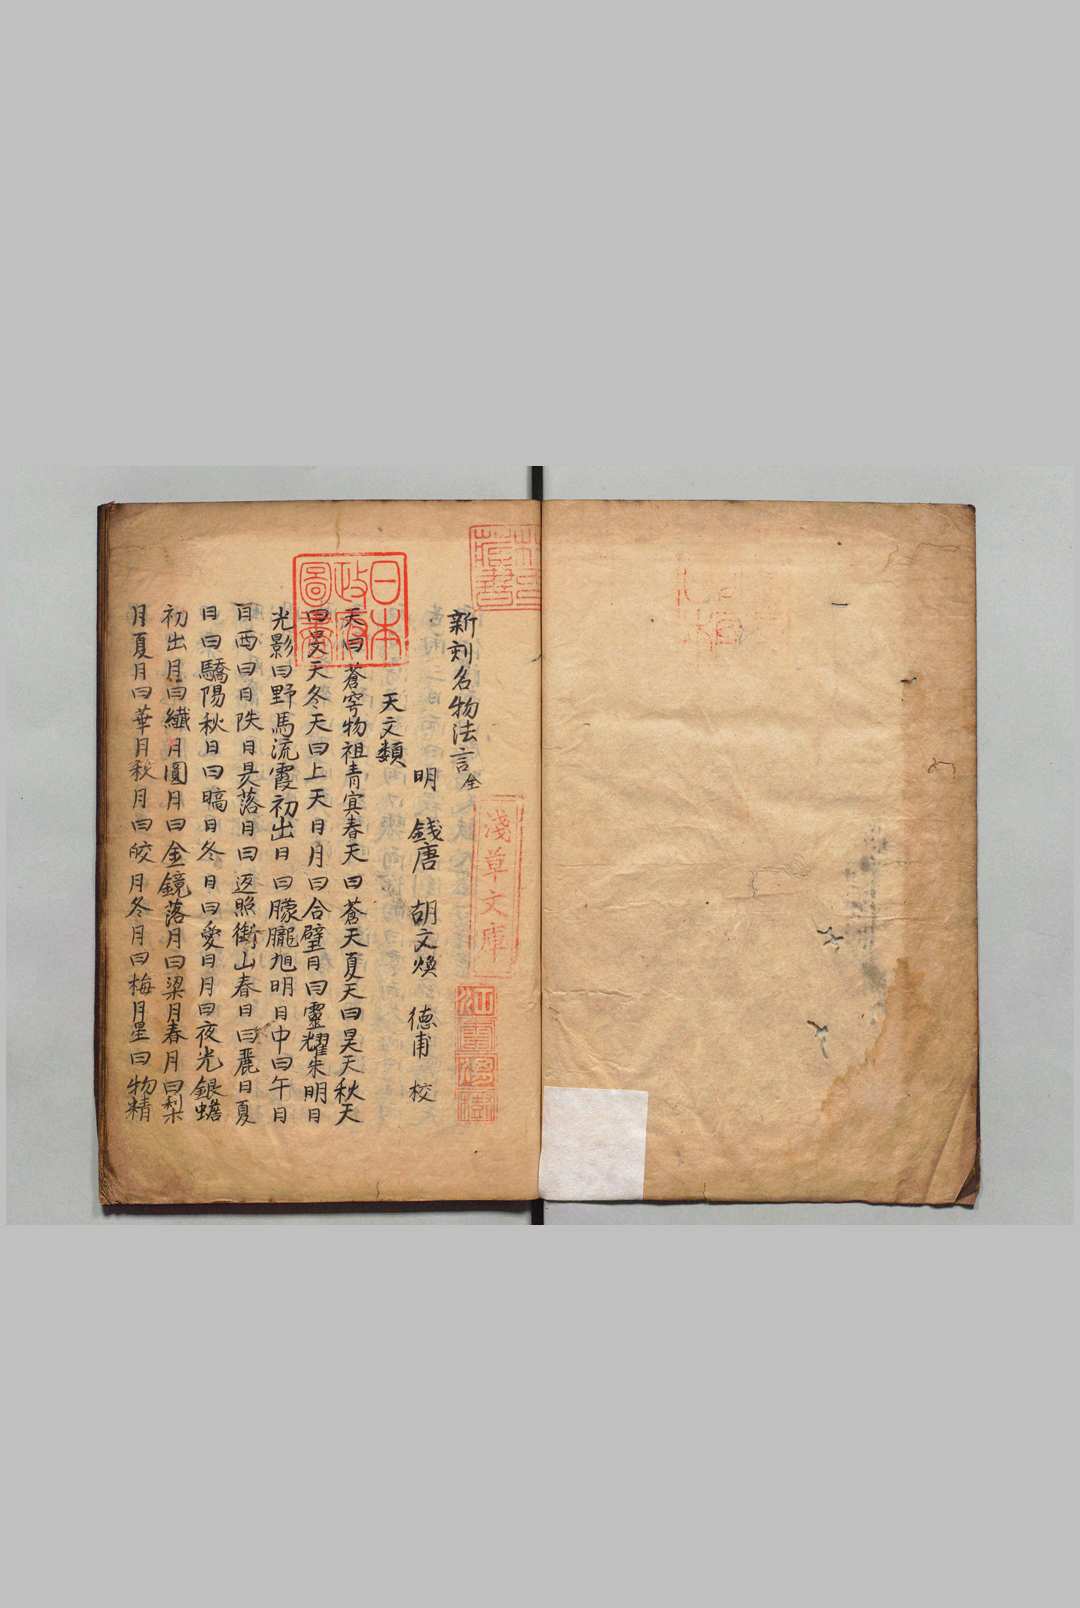 新刻名物法言全
明　錢唐　胡文煥　德甫　校
天文類
天曰蒼穹物祖青冥春天曰蒼天夏天曰昊天秋天
曰旻天冬天曰上天日月曰合璧日曰靈耀朱明日
光影曰野馬流霞初出日曰朦朧旭明日中曰午日
日西曰日昳日昃落日曰返照銜山春日曰麗日夏
日曰驕陽秋日曰暠日冬日曰愛日月曰夜光銀蟾
初出月曰纖月圓月曰金鏡落月曰梁月春月曰梨
月夏月曰華月秋月曰皎月冬月曰梅月星曰物精
日本政府圖書
淺草文庫